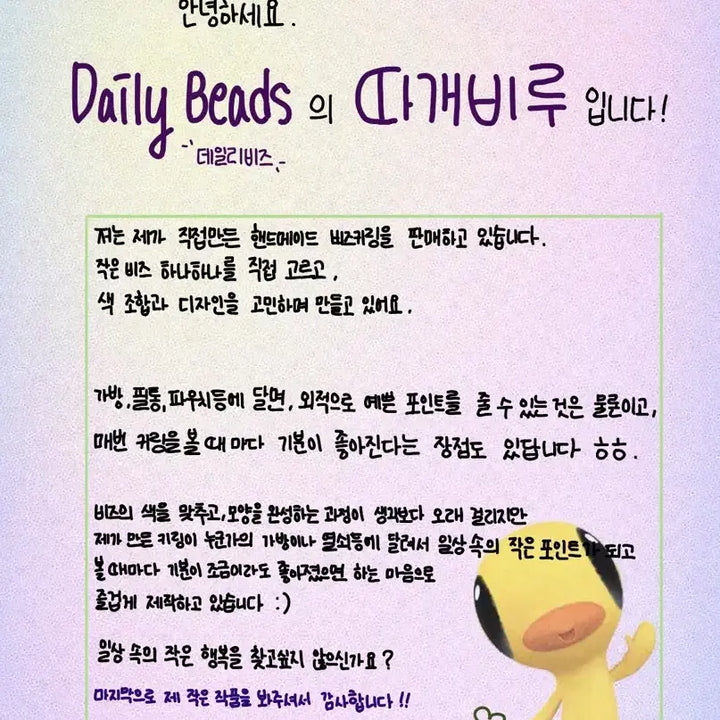 안녕하세요.
Daily Beads 의 따개비루 입니다!
데일리비즈
저는 제가 직접만든 핸드메이드 비즈키링을 판매하고 있습니다.
작은 비즈 하나하나를 직접 고르고,
색 조합과 디자인을 고민하며 만들고 있어요.
가방,필통,파우치등에 달면, 외적으로 예쁜 포인트를 줄 수 있는것은 물론이고,
매번 키링을볼 때 마다 기분이 좋아진다는 장점도 있답니다 ㅎㅎ.
비즈의 색을 맞추고,모양을 완성하는 과정이 생각보다 오래 걸리지만
제가 만든 키링이 누군가의 가방이나 열쇠등에 달려서 일상속의 작은 포인트가 되고
볼 때마다 기분이 조금이라도 좋아졌으면 하는 마음으로
즐겁게 제작하고 있습니다 :)
일상 속의 작은 행복을 찾고싶지 않으신가요?
마지막으로 제 작은 작품을 봐주셔서 감사합니다!!